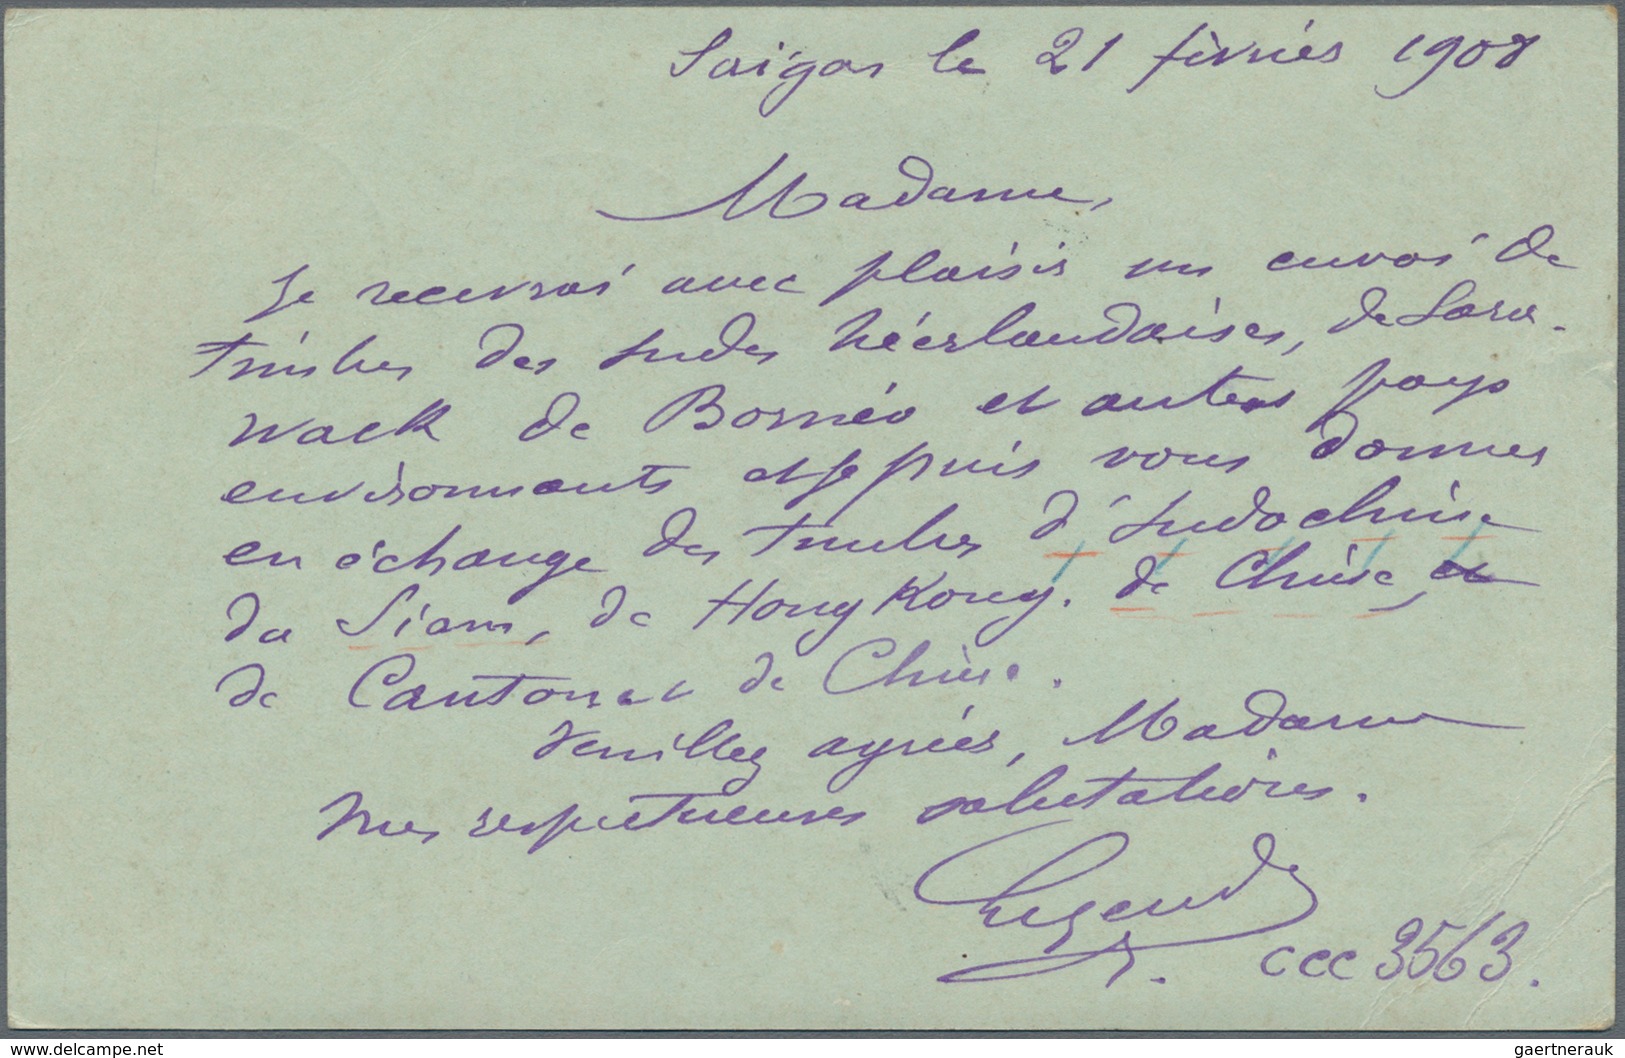 Saïgon le 21 février 1908
Madame,
Je recevrai avec plaisir un envoi de
timbres des Indes Néerlandaises, de Sara-
wack de Bornéo et autres pays
environnants et je puis vous donner
en échange des timbres d'Indochine
du Siam, de Hong Kong, de Chine et
de Canton et de Chine.
Veuillez agréer, Madame
mes respectueuses salutations.
CCC 3563.
delcampe.net
gaertnerauk